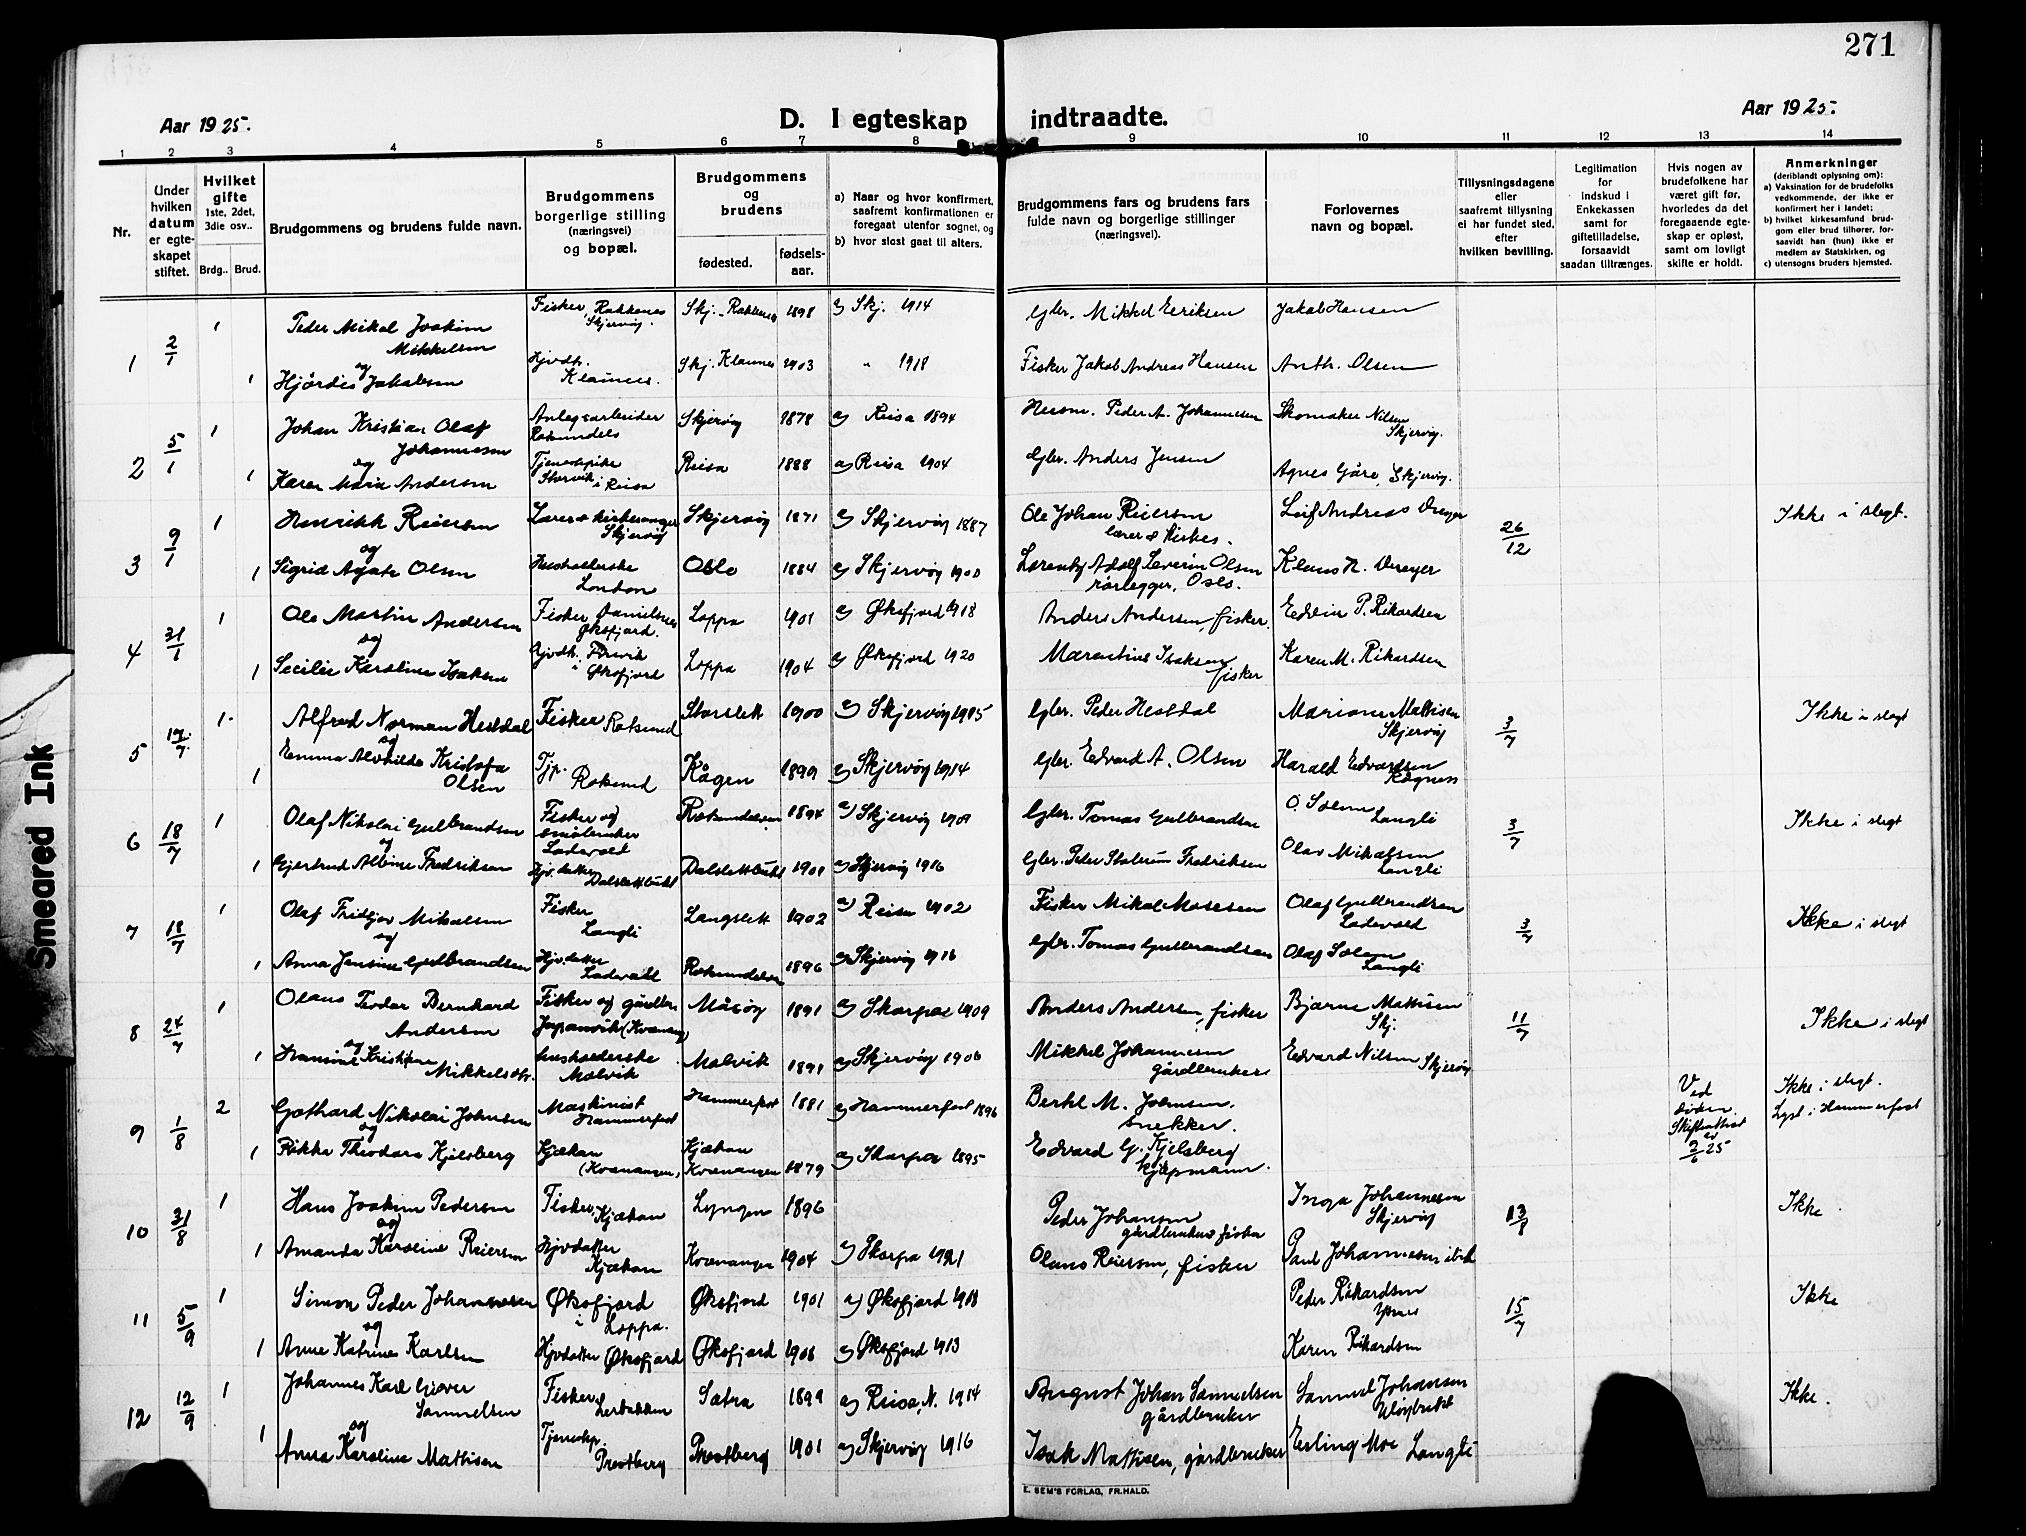 271
Aar 1925.
D. I egteskap indtraadte.
Aar 1925.
1 2 3 4 5 6 7 8 9 10 11 12 13 14
Nr.
Under hvilken datum er egteskapet stiftet.
Hvilket gifte 1ste, 2det, 3die osv..
Brdg.. Brud.
Brudgommens og brudens fulde navn.
Brudgommens borgerlige stilling (næringsvei) og bopæl.
Brudgommens og brudens
fødested.
fødselsaar.
a) Naar og hvor konfirmert, saafremt konfirmationen er foregaat utenfor sognet, og
b) hvor sidst gaat til alters.
Brudgommens fars og brudens fars fulde navn og borgerlige stillinger (næringsvei).
Forlovernes navn og bopæl.
Tillysningsdagene eller saafremt tillysning ei har fundet sted, efter hvilken bevilling.
Legitimation for indskud i Enkekassen samt for giftetilladelse, forsaavidt saadan tiltrænges.
Hvis nogen av brudefolkene har været gift før, hvorledes da det foregaaende egteskap er opløst, samt om lovligt skifte er holdt.
Anmerkninger (deriblandt oplysning om):
a) Vaksination for de brudefolks vedkommende, der ikke er konfirmert her i landet;
b) hvilket kirkesamfund brudgom eller brud tilhører, forsaavidt han (hun) ikke er medlem av Statskirken, og
c) utensogns bruders hjemsted.
1 2/1 1 Peder Mikal Joakim Mikkelsen Fisker Rakkenes Skjervøy. Skj. Rakkenes 1898 a) Skj. 1914 Gbr. Mikkel Eriksen Jakob Hansen
og
1 Hjørdis Jakobsen Hjvdtr. Klaunes. Skj. Klaunes 1903 " 1918 Fisker Jakob Andreas Hansen Anth. Olsen
2 5/1 1 Johan Kristian Olaf Johannesen Anlegsarbeider Rotsundelv Skjervøy 1878 a) Reisa 1894 Husm. Peder A. Johannesen Skomaker Nilsen Skjervøy.
og
1 Karen Maria Andersen Tjenestepike Storvik i Reisa Reisa 1888 a) Reisa 1904 Gbr. Anders Jensen Agnes Gåre, Skjervøy.
3 9/1 1 Henrikk Reiersen Lærer & kirkesanger Skjervøy Skjervøy 1871 a) Skjervøy 1887 Ole Johan Reiersen lærer & kirkes. Leif Andreas Dreyer 26/12 Ikke i slegt.
og
1 Sigrid Agate Olsen Husholderske London Oslo 1884 a) Skjervøy 1900 Lorentz Adolf Severin Olsen rørlegger, Oslo. Klaus N. Dreyer
4 31/1 1 Ole Martin Andersen Fisker Danielsnes Øksfjord. Loppa 1901 a) Øksfjord 1918 Anders Andersen, fisker. Edvin P. Rikardsen
og
1 Secilie Karoline Isaksen Hjvdt. Forvik i Øksfjord Loppa 1904 a) Øksfjord 1920 Marentius Isaksen fisker Karen M. Rikardsen
5 17/7 1 Alfred Norman Hestdal Fisker Rotsund Storslett 1900 a) Skjervøy 1915 Gbr. Peder Hestdal Marione Mattisen Skjervøy 3/7 Ikke i slegt
og
1 Emma Alvhilde Kristofa Olsen Tjp. Rotsund Kågen 1899 a) Skjervøy 1914 Gbr. Edvard A. Olsen Harald Edvardsen Kågnes
6 18/7 1 Olaf Nikolai Gulbrandsen Fisker og småbruker Ladevold Rotsundelven 1894 a) Skjervøy 1909 Gbr. Tomas Gulbrandsen O. Solem Langli 3/7 Ikke i slegt
og
1 Gjertrud Albine Fredriksen Hjv. datter Dalslettbukt Dalslettbukt 1901 a) Skjervøy 1916 Gbr. Peder Fredriksen Olav Mikalsen Langli
7 18/7 1 Olaf Fridtjov Mikalsen Fisker Langli Langslett 1902 a) Reisa 1902 Fisker Mikal Mosesen Olaf Gulbrandsen Ladevold 3/7 Ikke i slegt
og
1 Anna Jensine Gulbrandsen Hjv. datter Ladevold Rotsundelven 1896 a) Skjervøy 1916 Gbr. Tomas Gulbrandsen Olaf Solem Langli
8 24/7 1 Olaus Teodor Bernhard Andersen Fisker og gårdbr. (Kvænang) Måsøy 1891 a) Skorpa 1909 Anders Andersen, fisker Bjarne Mattisen Skj. 11/7 Ikke i slegt
og
1 Hansine Kristine Mikkelsdtr. husholderske Malvik Malvik 1891 a) Skjervøy 1906 Mikkel Johannesen gårdbruker Edvard Nilsen Skjervøy
9 1/8 2 Gothard Nikolai Johnsen Maskinist Hammerfest Hammerfest 1881 a) Hammerfest 1896 Berthl M. Johnsen. snekker. Ved døden. Skifteattest av 2/6 25 Ikke i slegt. Lyst i Hammerfest
og
1 Rikka Theodora Kjelsberg Kjækan (Kvænangen) Kjækan Kvænangen 1879 a) Skorpa 1895 Edvard G. Kjelsberg kjøpmann.
10 31/8 1 Hans Joakim Pedersen Fisker, Kjækan Lyngen 1896 Peder Johansen gårdbruker fisker Inga Johannesen Skjervøy 13/8 Ikke
og
1 Amanda Karoline Reiersen Hjvdatter Kjækan Kvænangen 1904 a) Skorpa 1921 Olaus Reiersen, fisker Paul Johannesen ibid
11 5/9 1 Simon Peder Johannesen Øksfjord i Loppa. Øksfjord 1901 a) Øksfjord 1918 Peder Rikardsen 15/7 Ikke
og
1 Anne Katrine Karlsen Hjvdatter Øksfjord Øksfjord 1906 a) Øksfjord 1913 Karen Rikardsen
12 12/9 1 Johannes Karl Giæver Samuelsen Fisker, Lerbakken Sætra 1899 a) Reisa, N. 1914 August Johan Samuelsen gårdbruker Samuel Johansen Uløybukt Ikke.
og
1 Anna Karoline Mattisen Tjenestep. Prestberg Prestberg 1901 a) Skjervøy 1916 Isak Mattisen, gårdbruker Erling Moe Langli
E. SEM'S FORLAG, FR.HALD.
Smeared Ink